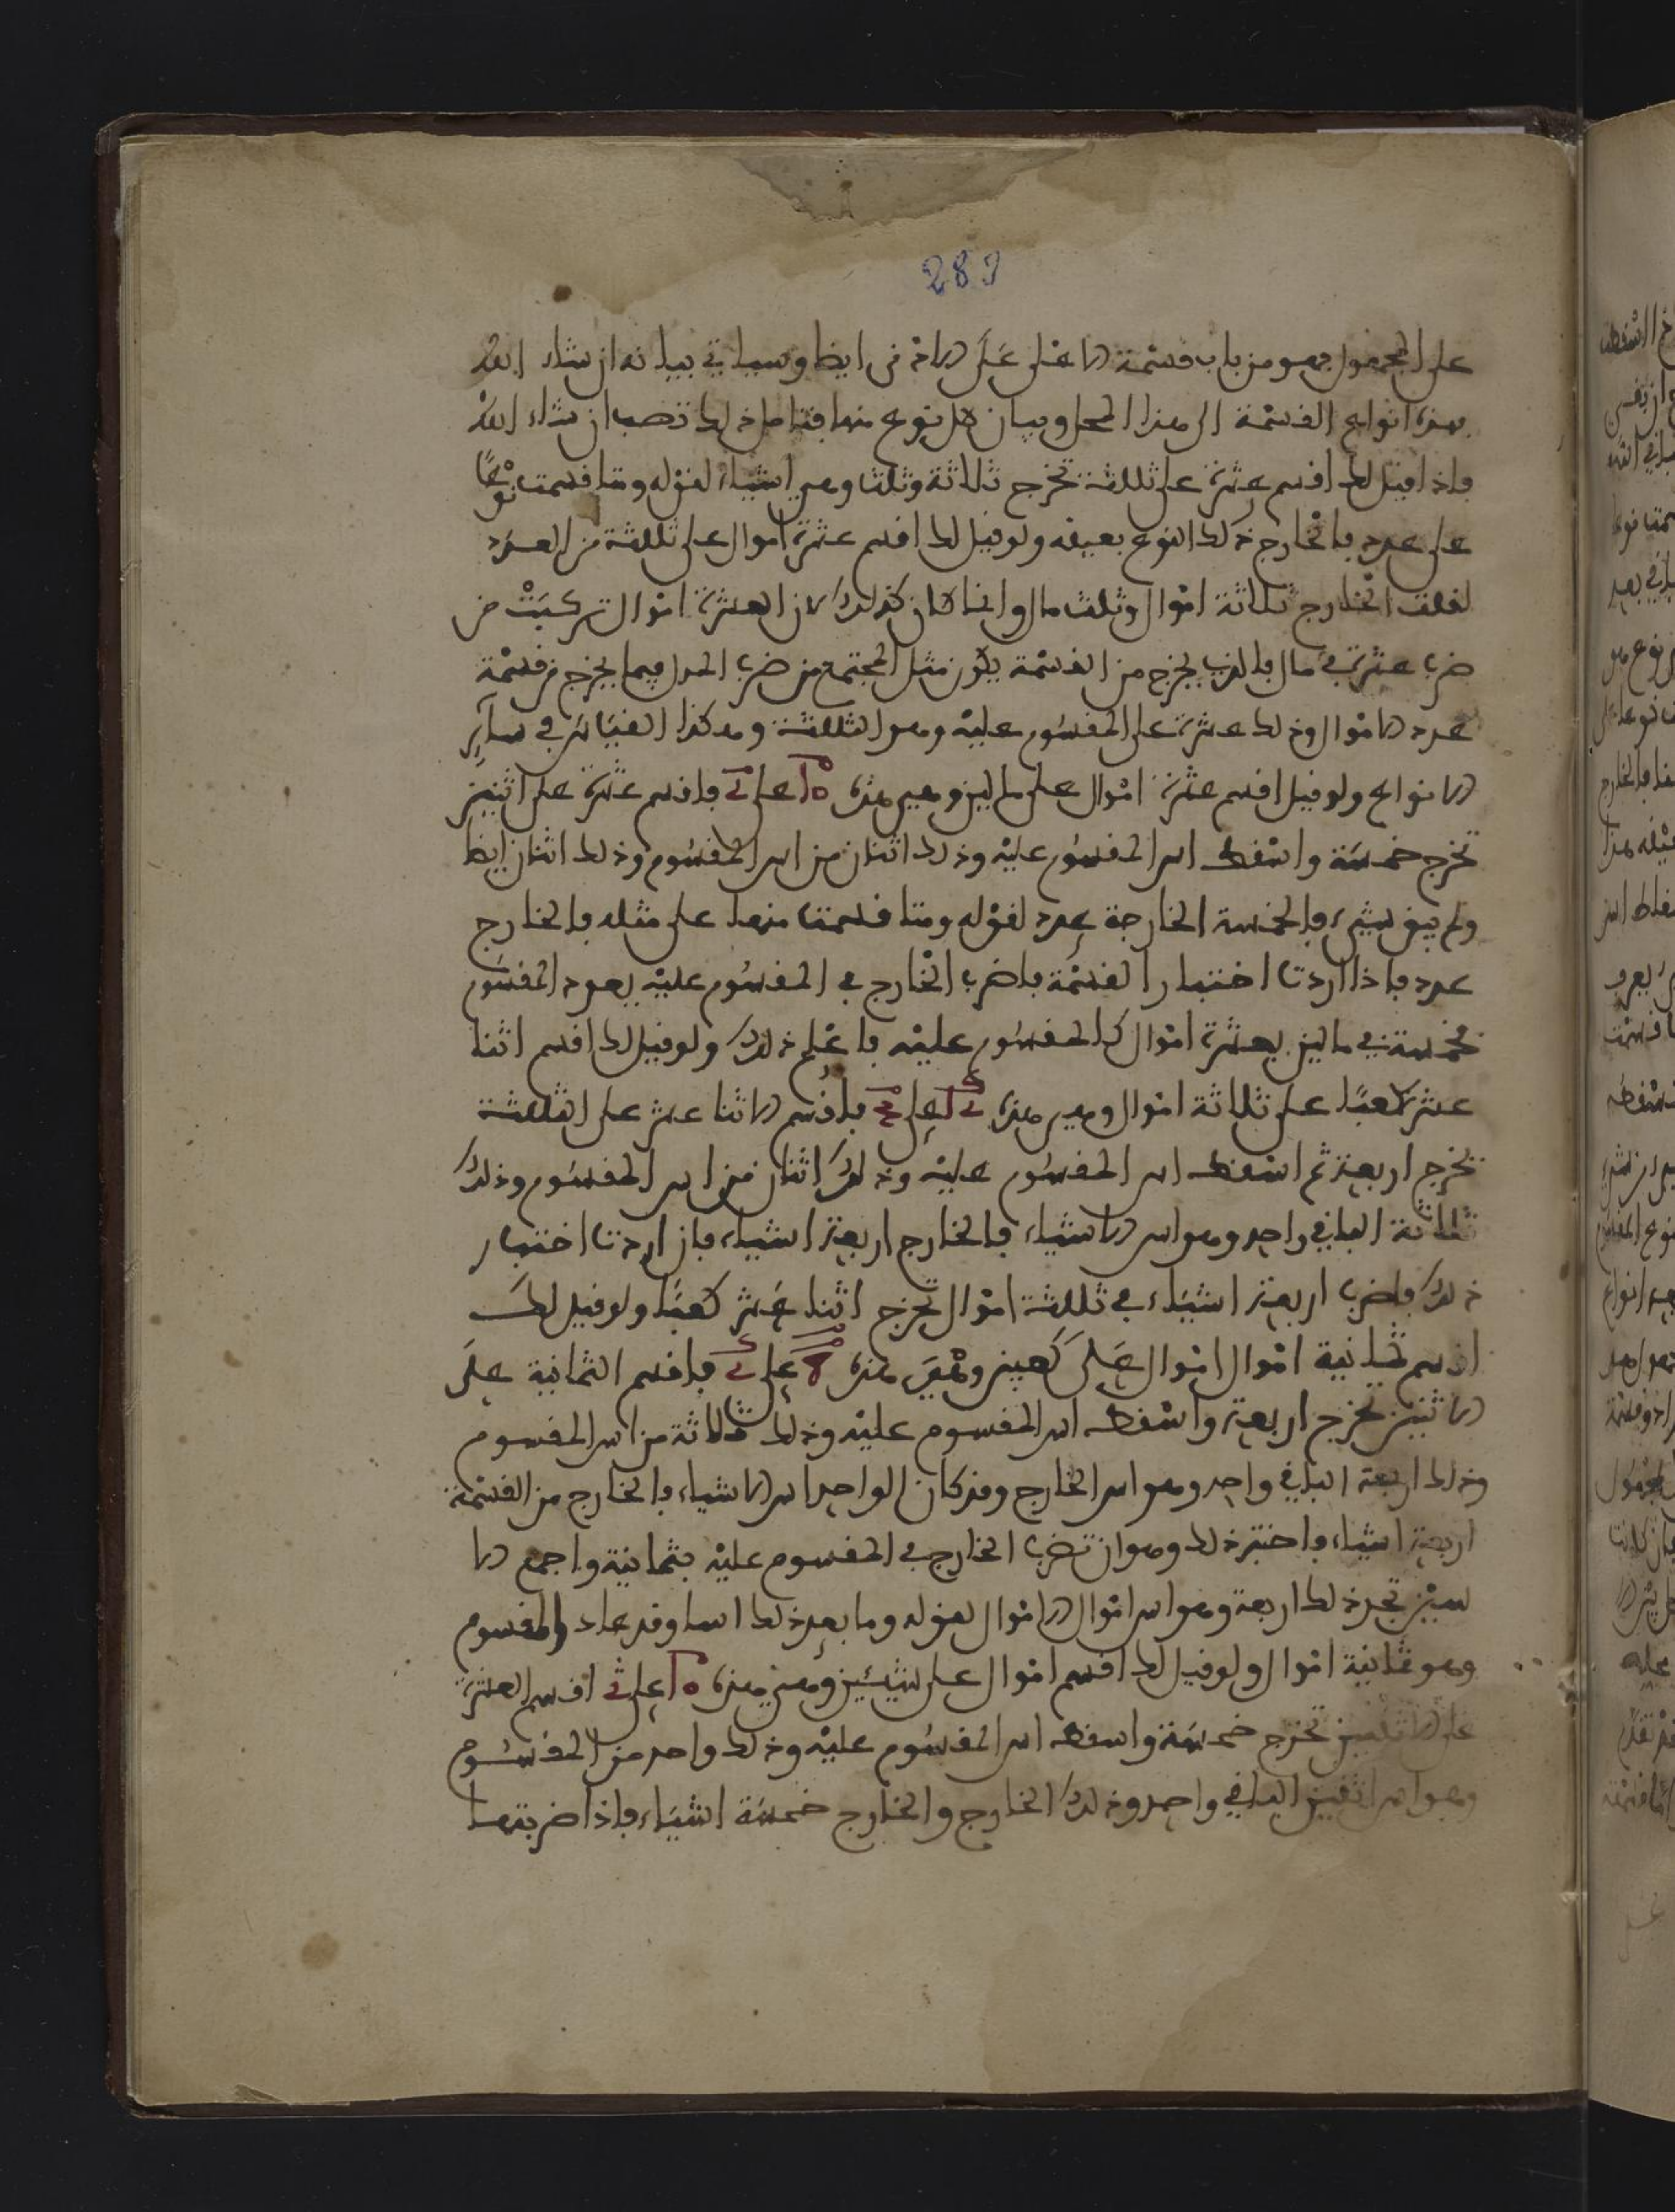 283
على المجهول فهو من باب قسمة الاعلى على الادنى ايضا وسياتي بيانه ان شاء الله
فهذه انواع القسمة الى هذا المحل وبيان كل نوع منها فتامل ذلك تصب ان شاء الله
فاذا قيل لك اقسم عشرة على ثلثة تخرج ثلاثة وثلث وهي اشياء لقوله ومتا قسمت نوعًا
على عدد فالخارج ذلك النوع بعينه ولو قيل لك اقسم عشرة اموال على ثلثة من العدد
لقلت الخارج ثلاثة اموال وثلث مال وانما كان كذلك لان العشرة اموال تركبت من
ضرب عشرة في مال فالذي يخرج من القسمة يكون مثل المجتمع من ضرب المال فيما يخرج من قسمة
عدد الاموال وذلك عشرة على المقسوم عليه وهو الثلثة وهكذا القياس في ساير
الانواع ولو قيل اقسم عشرة اموال على مالين وهي هذه على فاقسم عشرة على اثنين
تخرج خمسة واسقط اس المقسوم عليه وذلك اثنان من اس المقسوم وذلك اثنان ايضا
ولم يبق شيء فالخمسة الخارجة عدد لقوله ومتا قسمت منها على مثله فالخارج
عدد فاذا اردت اختبار القسمة فاضرب الخارج في المقسوم عليه يعود المقسوم
فخمسة في مالين بعشرة اموال كالمقسوم عليه فاعلم ذلك ولو قيل لك اقسم اثنا
عشر كعبًا على ثلاثة اموال وهي هذه على فاقسم الاثنا عشر على الثلثة
تخرج اربعة ثم اسقط اس المقسوم عليه وذلك اثنان من اس المقسوم وذلك
ثلاثة الباقي واحد وهو اس الاشياء فالخارج اربعة اشياء فان اردت اختبار
ذلك فاضرب اربعة اشياء في ثلثة اموال تخرج اثنا عشر كعبًا ولو قيل لك
اقسم ثمانية اموال اموال على كعبين وهي هذه على فاقسم الثمانية على
الاثنين تخرج اربعة واسقط اس المقسوم عليه وذلك ثلاثة من اس المقسوم
وذلك اربعة الباقي واحد وهو اس الخارج وقد كان الواحد اس الاشياء فالخارج من القسمة
اربعة اشياء فاختبر ذلك وهو ان تضرب الخارج في المقسوم عليه بثمانية واجمع الا
سين تجد ذلك اربعة وهو اس اموال الاموال لقوله وما بعد ذلك اسا وقد عاد المقسوم
وهو ثمانية اموال ولو قيل لك اقسم اموال على شيئين وهي هذه على اقسم العشرة
على الاثنين تخرج خمسة واسقط اس المقسوم عليه وذلك واحد من المقسوم
وهو اس اثنين الباقي واحد وذلك الخارج والخارج خمسة اشياء فاذا ضربتها